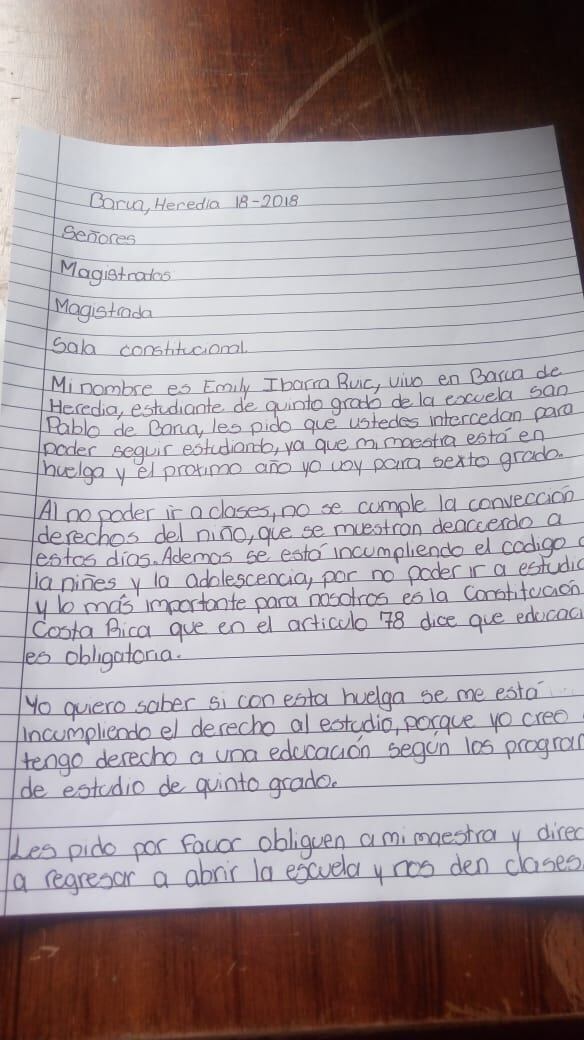 Barva, Heredia 18-2018
Señores
Magistrados
Magistrada
Sala constitucional.
Mi nombre es Emily Ibarra Ruic, vivo en Barva de
Heredia, estudiante de quinto grado de la escuela san
Pablo de Barva, les pido que ustedes intercedan para
poder seguir estudiando, ya que mi maestra está en
huelga y el proximo año yo voy para sexto grado.
Al no poder ir a clases, no se cumple la convección
derechos del niño, que se muestran deacuerdo a
estos días. Ademas se está incumpliendo el codigo
la niñes y la adolescencia, por no poder ir a estudi
y lo más importante para nosotros es la Constitución
Costa Rica que en el articulo 78 dice que educaci
es obligatoria.
Yo quiero saber si con esta huelga se me está
incumpliendo el derecho al estudio, porque yo creo
tengo derecho a una educación según los program
de estudio de quinto grado.
Les pido por favor obliguen a mi maestra y direc
a regresar a abrir la escuela y nos den clases.